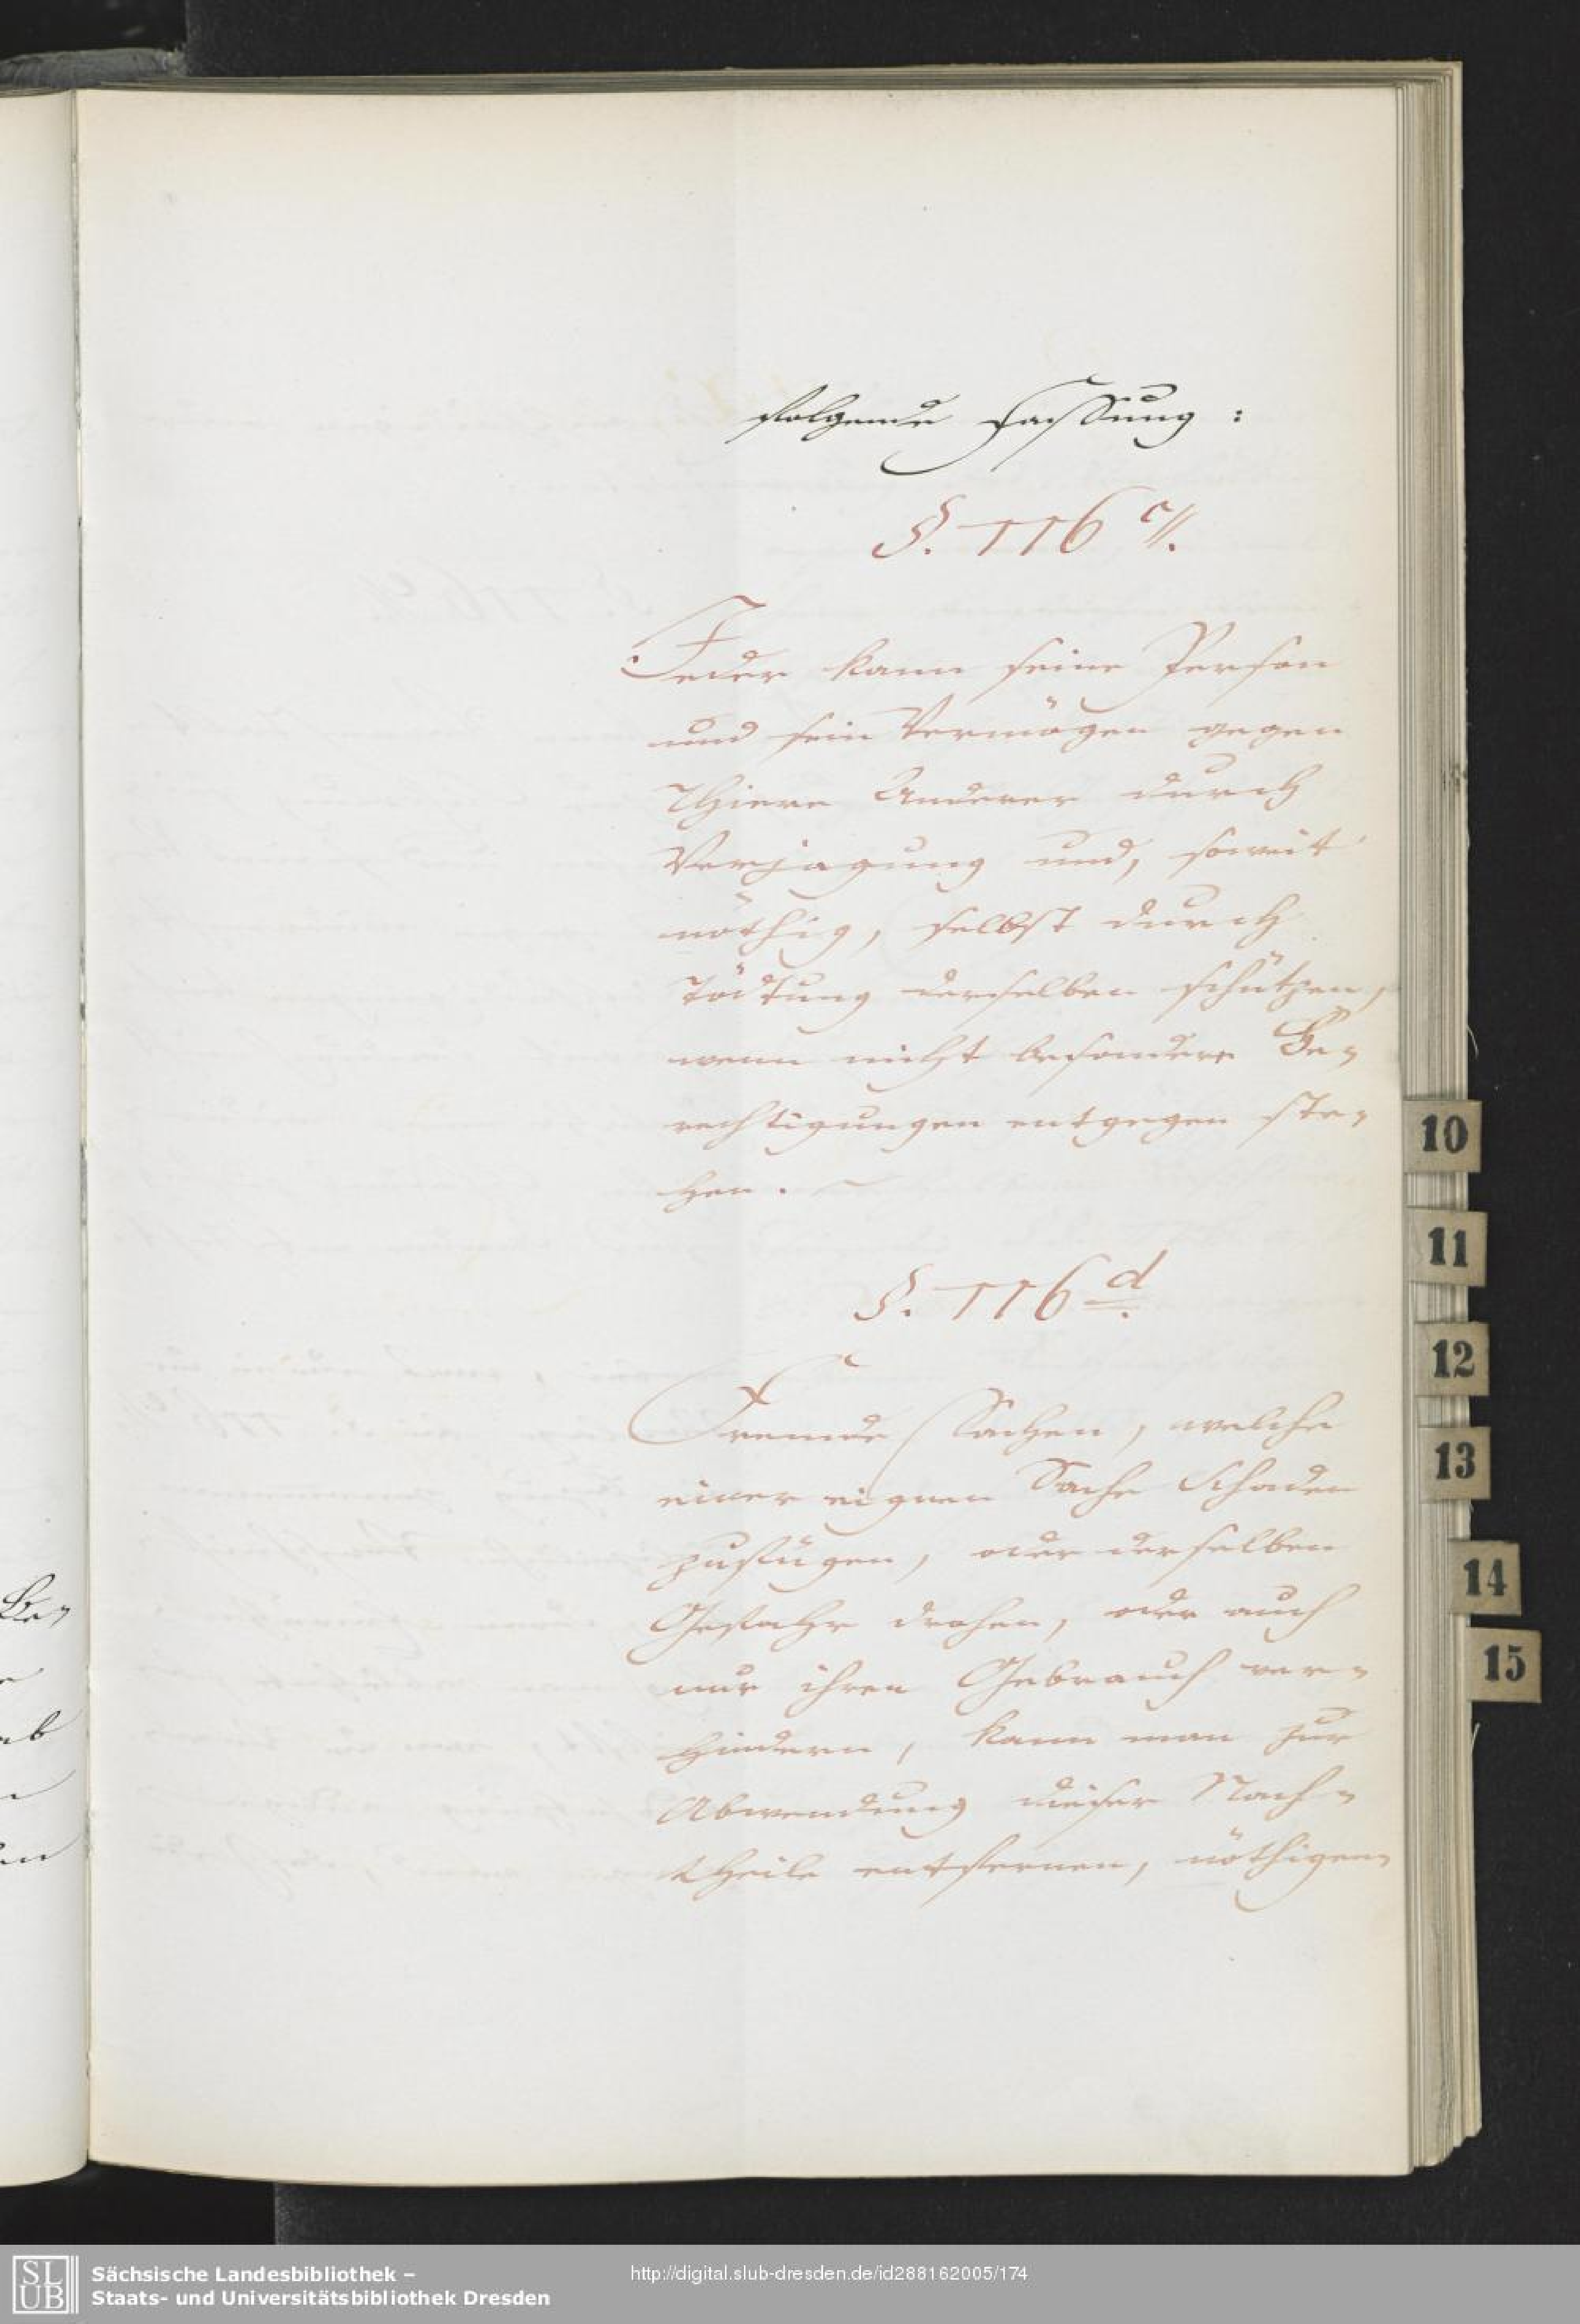 folgende Fassung:
§. 116 c//.
Jeder kann seine Person
und sein Vermögen gegen
Thiere Anderer durch
Verjagung und, soweit
nöthig, selbst durch
Tödtung derselben schützen,
wenn nicht besondere Be-
rechtigungen entgegen ste-
hen.
§. 116 d.
Fremde Sachen, welche
einer eignen Sache Schaden
zufügen, oder derselben
Gefahr drohen, oder auch
nur ihren Gebrauch ver-
hindern, kann man zur
Abwendung dieser Nach-
theile entfernen, nöthigen-
Be-
10
11
12
13
14
15
SLUB
Sächsische Landesbibliothek –
Staats- und Universitätsbibliothek Dresden
http://digital.slub-dresden.de/id288162005/174